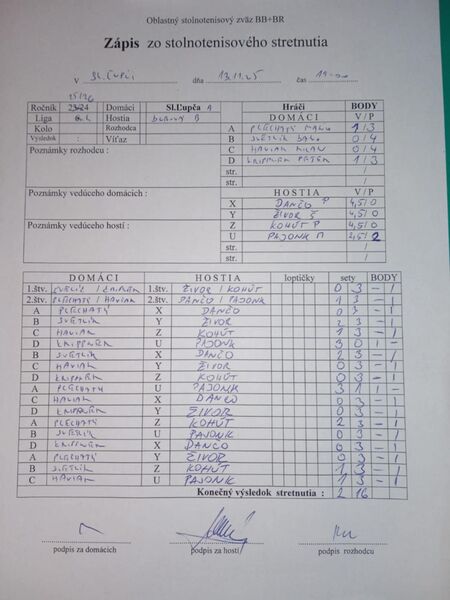 Oblastný stolnotenisový zväz BB+BR
Zápis zo stolnotenisového stretnutia
v SL. ĽUPČI dňa 13.11.25 čas
25/26
Ročník 23/24 Domáci Sl.Ľupča A Hráči BODY
Liga 6. Hostia B DOMÁCI V/P
Kolo Rozhodca A PLECHATÝ 1/3
Výsledok : Víťaz B SVETLÍK 0/4
Poznámky rozhodcu : C HAVIAR MILAN 0/4
D KRIPPNER PETER 1/3
str. /
str. /
Poznámky vedúceho domácich : HOSTIA V/P
X DANČO P 4,5/0
Y ŽIVOR Š 4,5/0
Poznámky vedúceho hostí : Z KOHÚT P 4,5/0
U PAJONK M 2,5/2
str. /
str. /
DOMÁCI HOSTIA loptičky sety BODY
1.štv. SVETLÍK / KRIPPNER 1.štv. ŽIVOR / KOHÚT 0 3 - 1
2.štv. PLECHATÝ / HAVIAR 2.štv. DANČO / PAJONK 1 3 - 1
A PLECHATÝ X DANČO 0 3 - 1
B SVETLÍK Y ŽIVOR 2 3 - 1
C HAVIAR Z KOHÚT 1 3 - 1
D KRIPPNER U PAJONK 3 0 1 -
B SVETLÍK X DANČO 2 3 - 1
C HAVIAR Y ŽIVOR 0 3 - 1
D KRIPPNER Z KOHÚT 0 3 - 1
A PLECHATÝ U PAJONK 3 1 1 -
C HAVIAR X DANČO 0 3 - 1
D KRIPPNER Y ŽIVOR 0 3 - 1
A PLECHATÝ Z KOHÚT 2 3 - 1
B SVETLÍK U PAJONK 0 3 - 1
D KRIPPNER X DANČO 0 3 - 1
A PLECHATÝ Y ŽIVOR 0 3 - 1
B SVETLÍK Z KOHÚT 1 3 - 1
C HAVIAR U PAJONK 1 3 - 1
Konečný výsledok stretnutia : 2 16
podpis za domácich podpis za hostí podpis rozhodcu